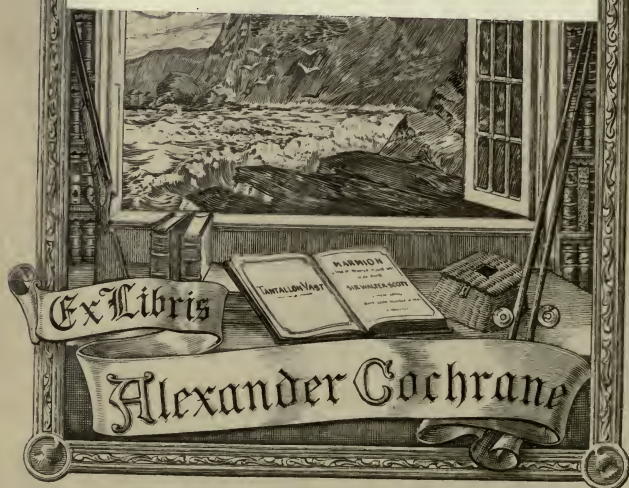 TANTALLON VAST
MARMION
SIR WALTER SCOTT
Ex Libris
Alexander Cochrane